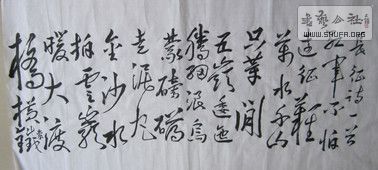 長征詩一首
紅軍不怕
遠征難
萬水千山
只等閒
五嶺逶迤
騰細浪烏
蒙磅礴
走泥丸
金沙水
拍雲崖
暖大渡
橋橫鐵索
WWW.SHUFA.ORG